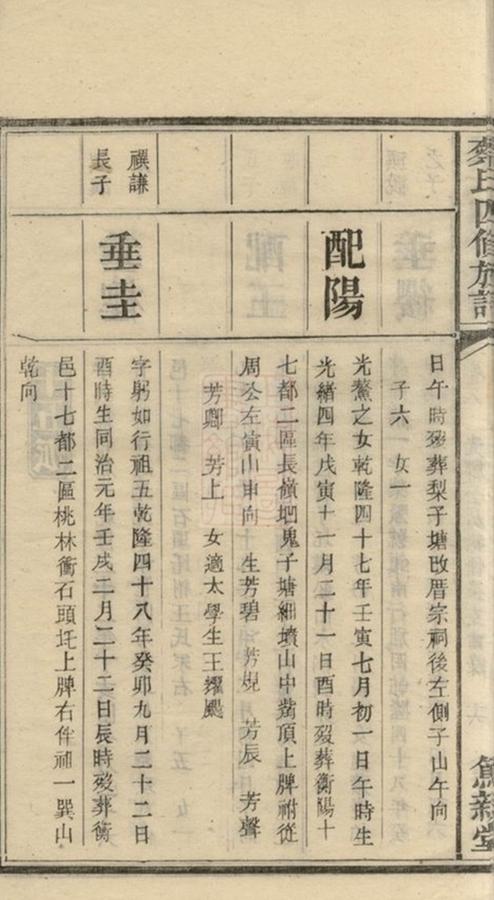 氏四修族譜
篤親堂
日午時歿葬梨子塘改厝宗祠後左側子山午向
子六 女一
配陽
光鰲之女乾隆四十七年壬寅七月初一日午時生
光緒四年戊寅十一月二十一日酉時歿葬衡陽十
七都二區長嶺垇鬼子塘細墳山中嵡頂上牌祔從
周公左寅山申向 生芳碧 芳規 芳辰 芳聲
芳卿 芳上 女適太學生王耀颺
禩謙
長子
垂圭
字躬如行祖五乾隆四十八年癸卯九月二十二日
酉時生同治元年壬戌二月二十二日辰時歿葬衡
邑十七都二區桃林衝石頭圫上牌右伴祖一巽山
乾向